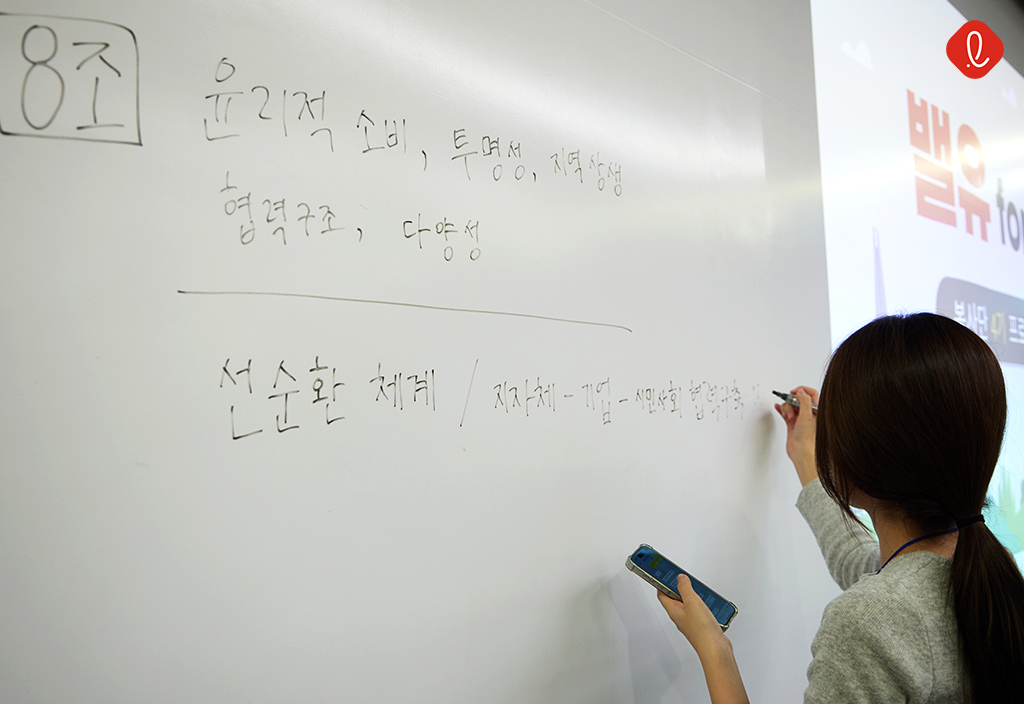 8조
윤리적 소비, 투명성, 지역상생
협력구조, 다양성
선순환 체계 / 지자체 - 기업 - 시민사회 협력구축
밸유
봉사단 4기